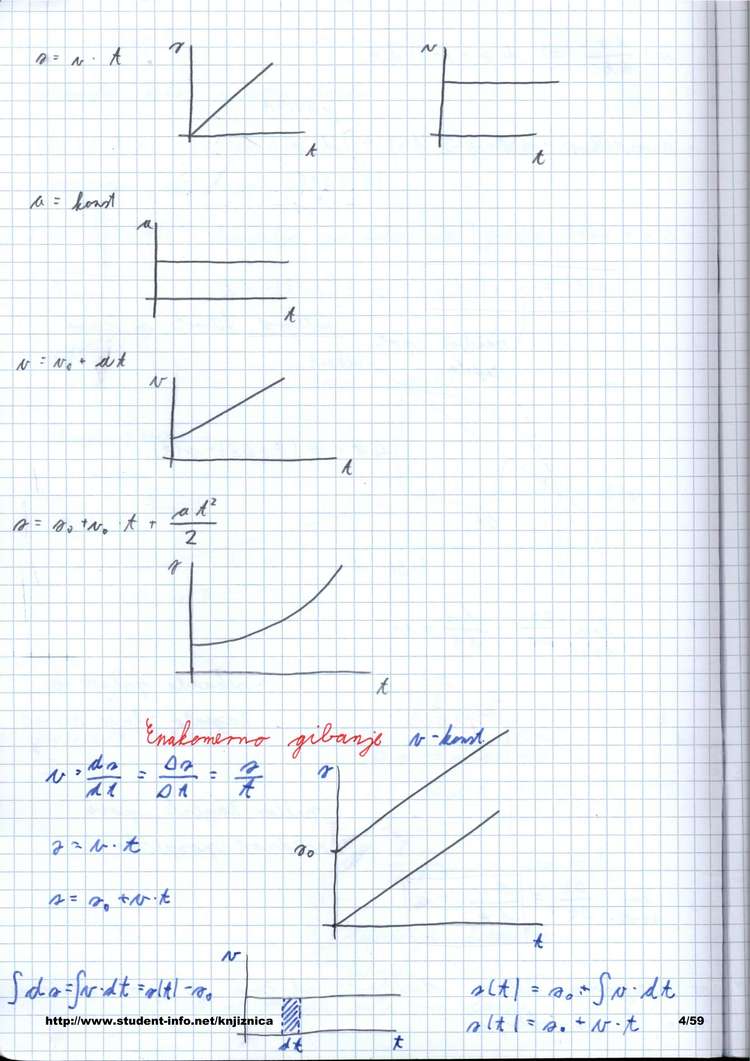 s = v · t
s
t
v
t
a = konst
a
t
v = v₀ + at
v
t
s = s₀ + v₀ · t + at²/2
s
t
Enakomerno gibanje v - konst.
v = ds/dt = Δs/Δt = s/t
s
s = v · t
s₀
s = s₀ + v · t
t
v
∫ds = ∫v · dt = s(t) - s₀
s(t) = s₀ + ∫v · dt
http://www.student-info.net/knjiznica
dt
t
s(t) = s₀ + v · t
4/59